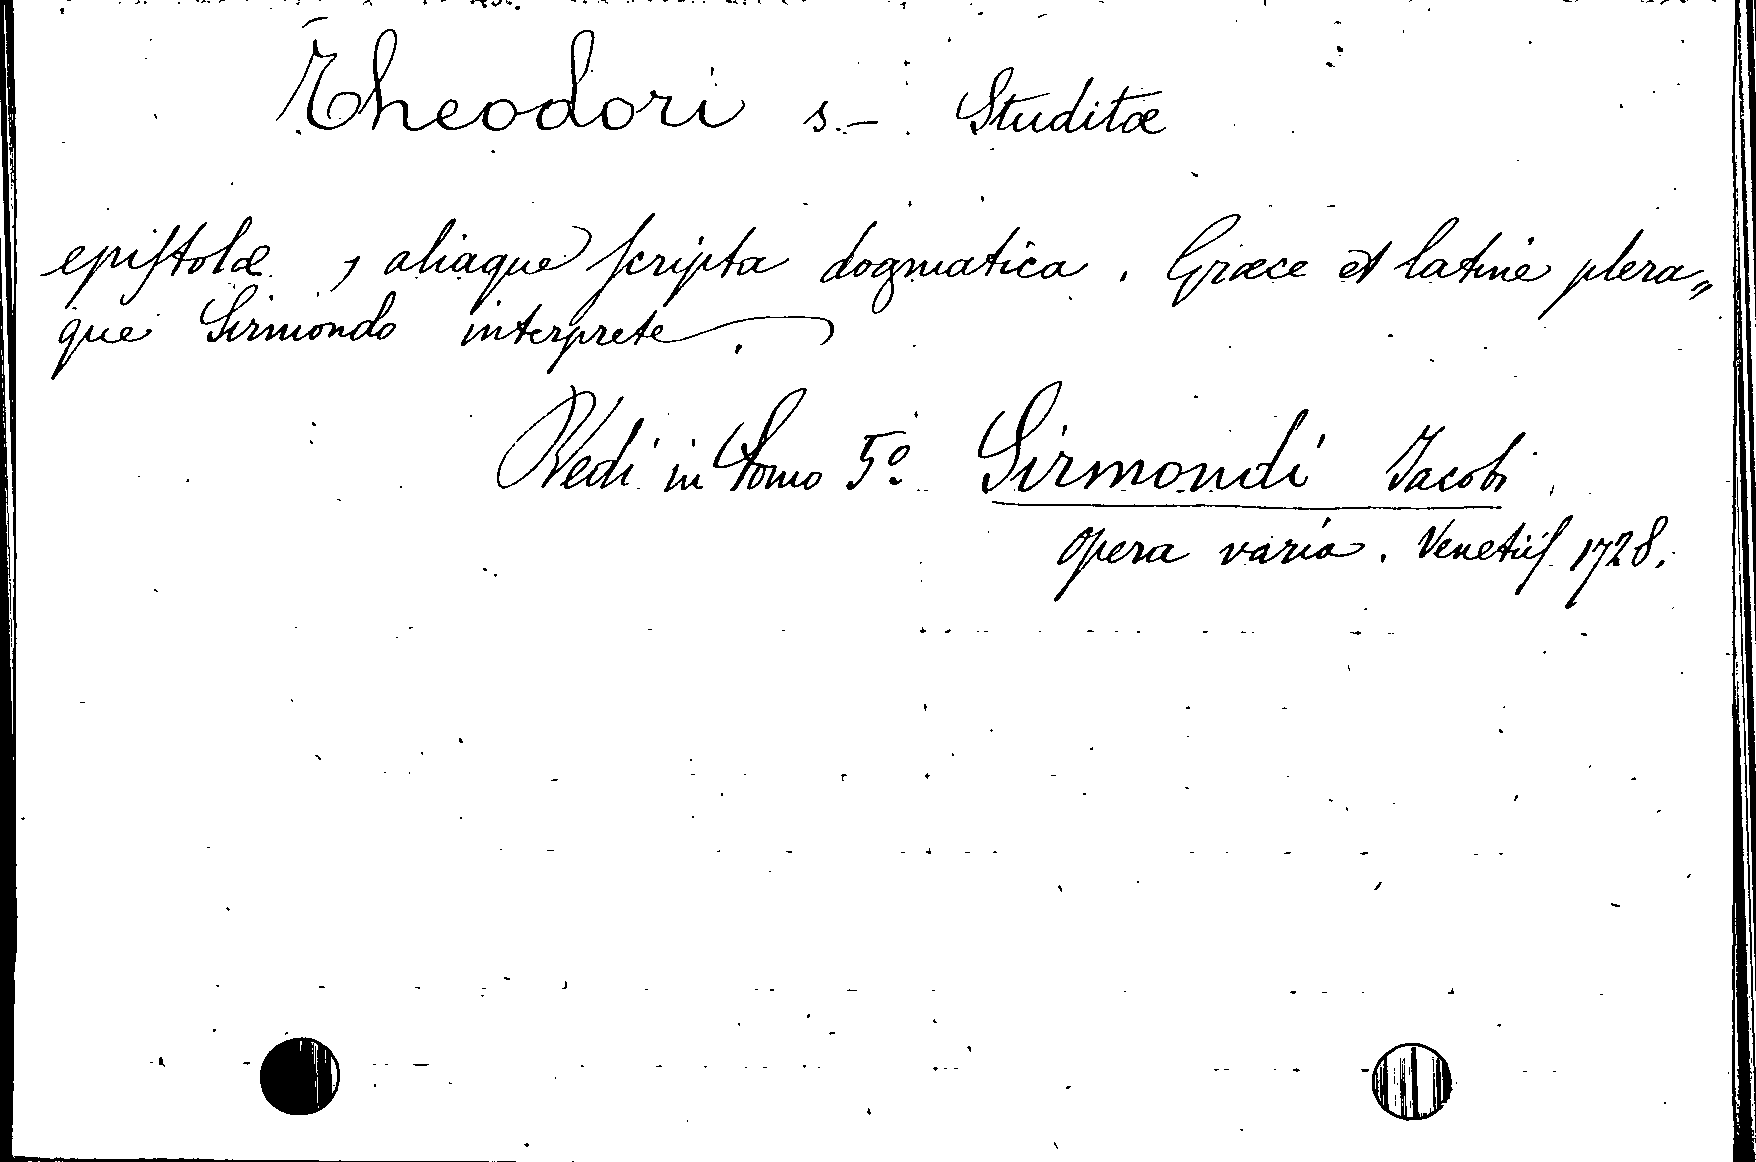 Theodori s.– Studitæ
epiſtolæ, aliaque ſcripta dogmatica. Græce et latine plera„
que Sirmondo interprete.
Vedi in tomo 5º Sirmondi Jacobi
opera varia. Venetiiſ 1728.